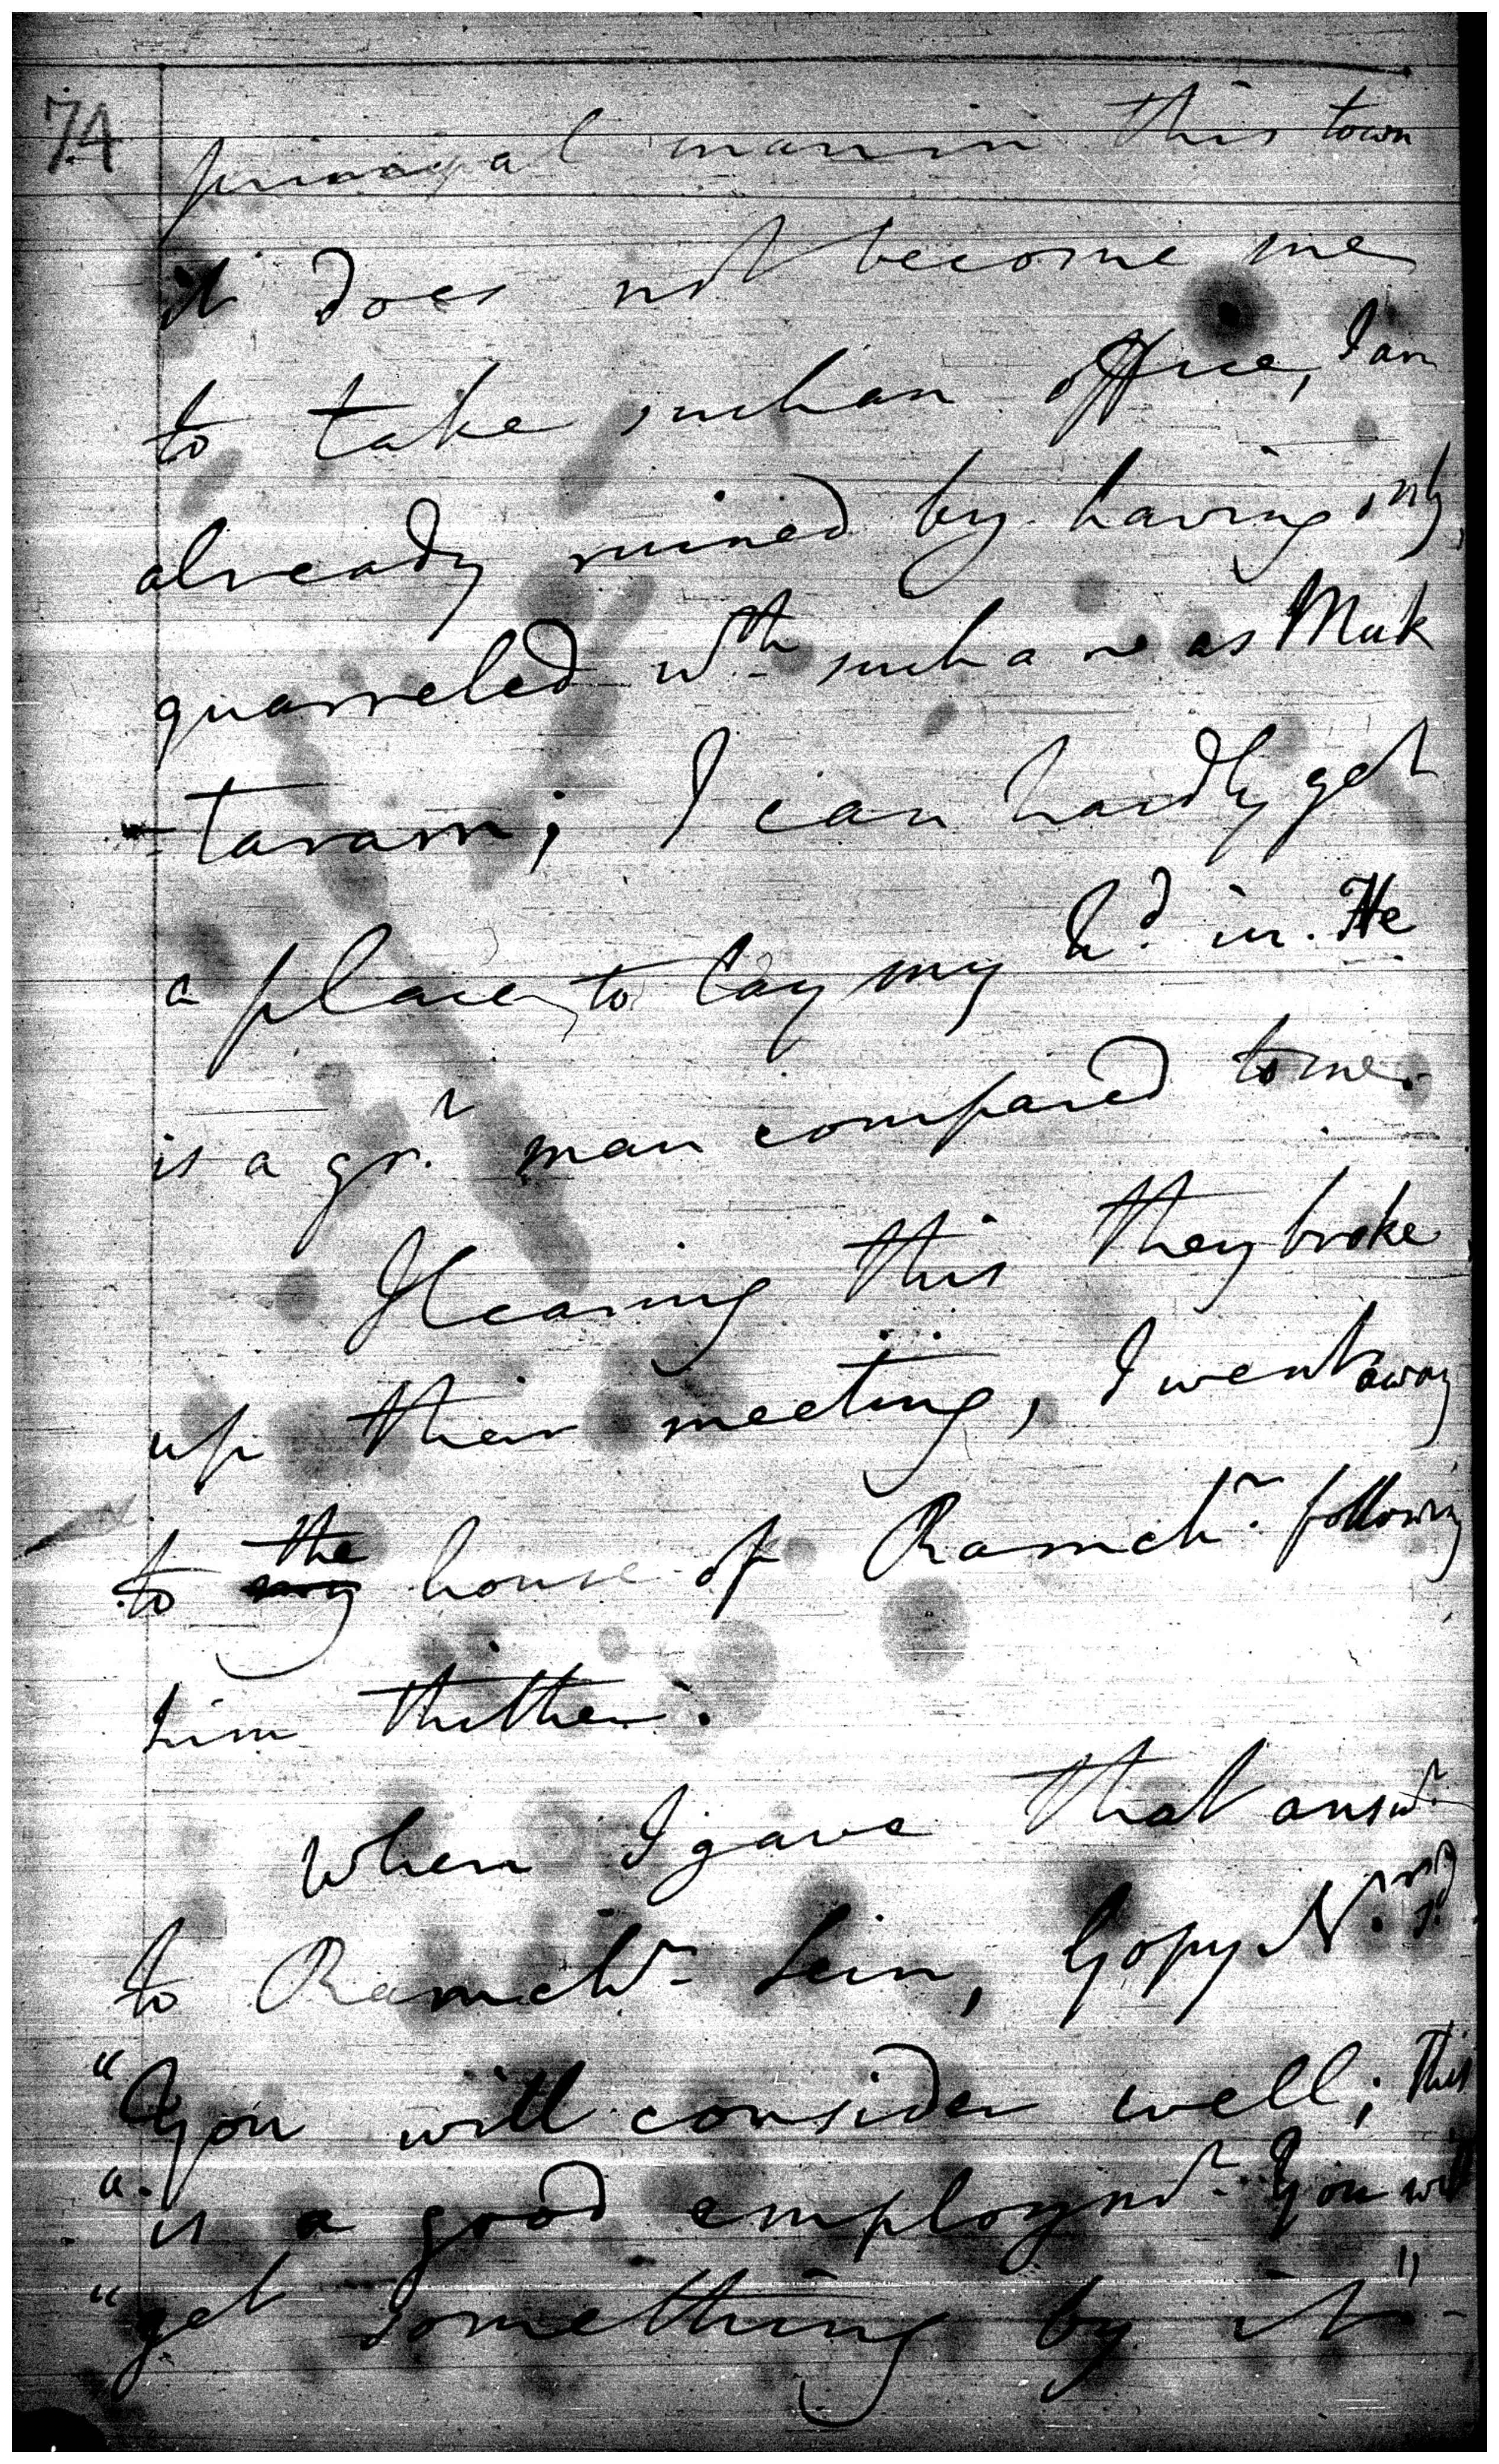 74
principal man in this town
it does not become me
to take such an office, I am
already ruined by having only
quarreled wth. such a one as Muk
-taram; I can hardly get
a place to lay my hd. in. He
is a grt. man compared to me.
Hearing this they broke
up their meeting, I went away
to my the house of Ramchr. following
him thither.
When I gave that answr.
to Ramchr. Sein, Gopy N.
"You will consider well; this
" is a good employmt. You will
" get something by it"